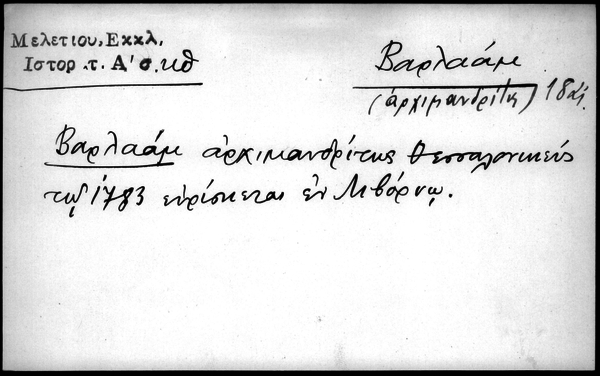 Μελετίου, Εκκλ,
Ιστορ .τ. Α' σ. κθ
Βαρλαάμ
(ἀρχιμανδρίτης) 18 αἰ.
Βαρλαάμ ἀρχιμανδρίτης Θεσσαλονικεύς
τῷ 1783 εὑρίσκεται ἐν Λιβόρνῳ.